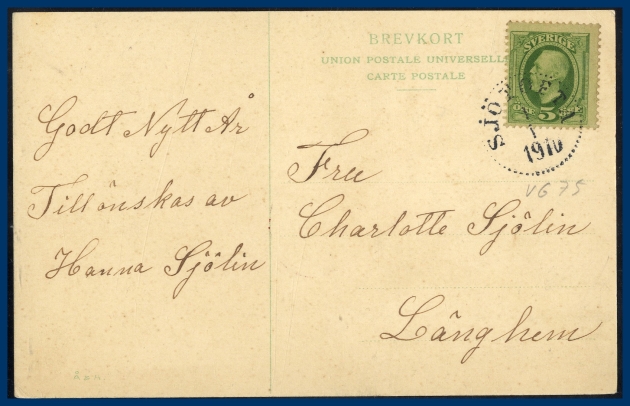 BREVKORT
UNION POSTALE UNIVERSELLE
CARTE POSTALE
SVERIGE
5
1910
VG 75
Godt Nytt År
Tillönskas av
Hanna Sjölin
Fru
Charlotte Sjölin
Länghem